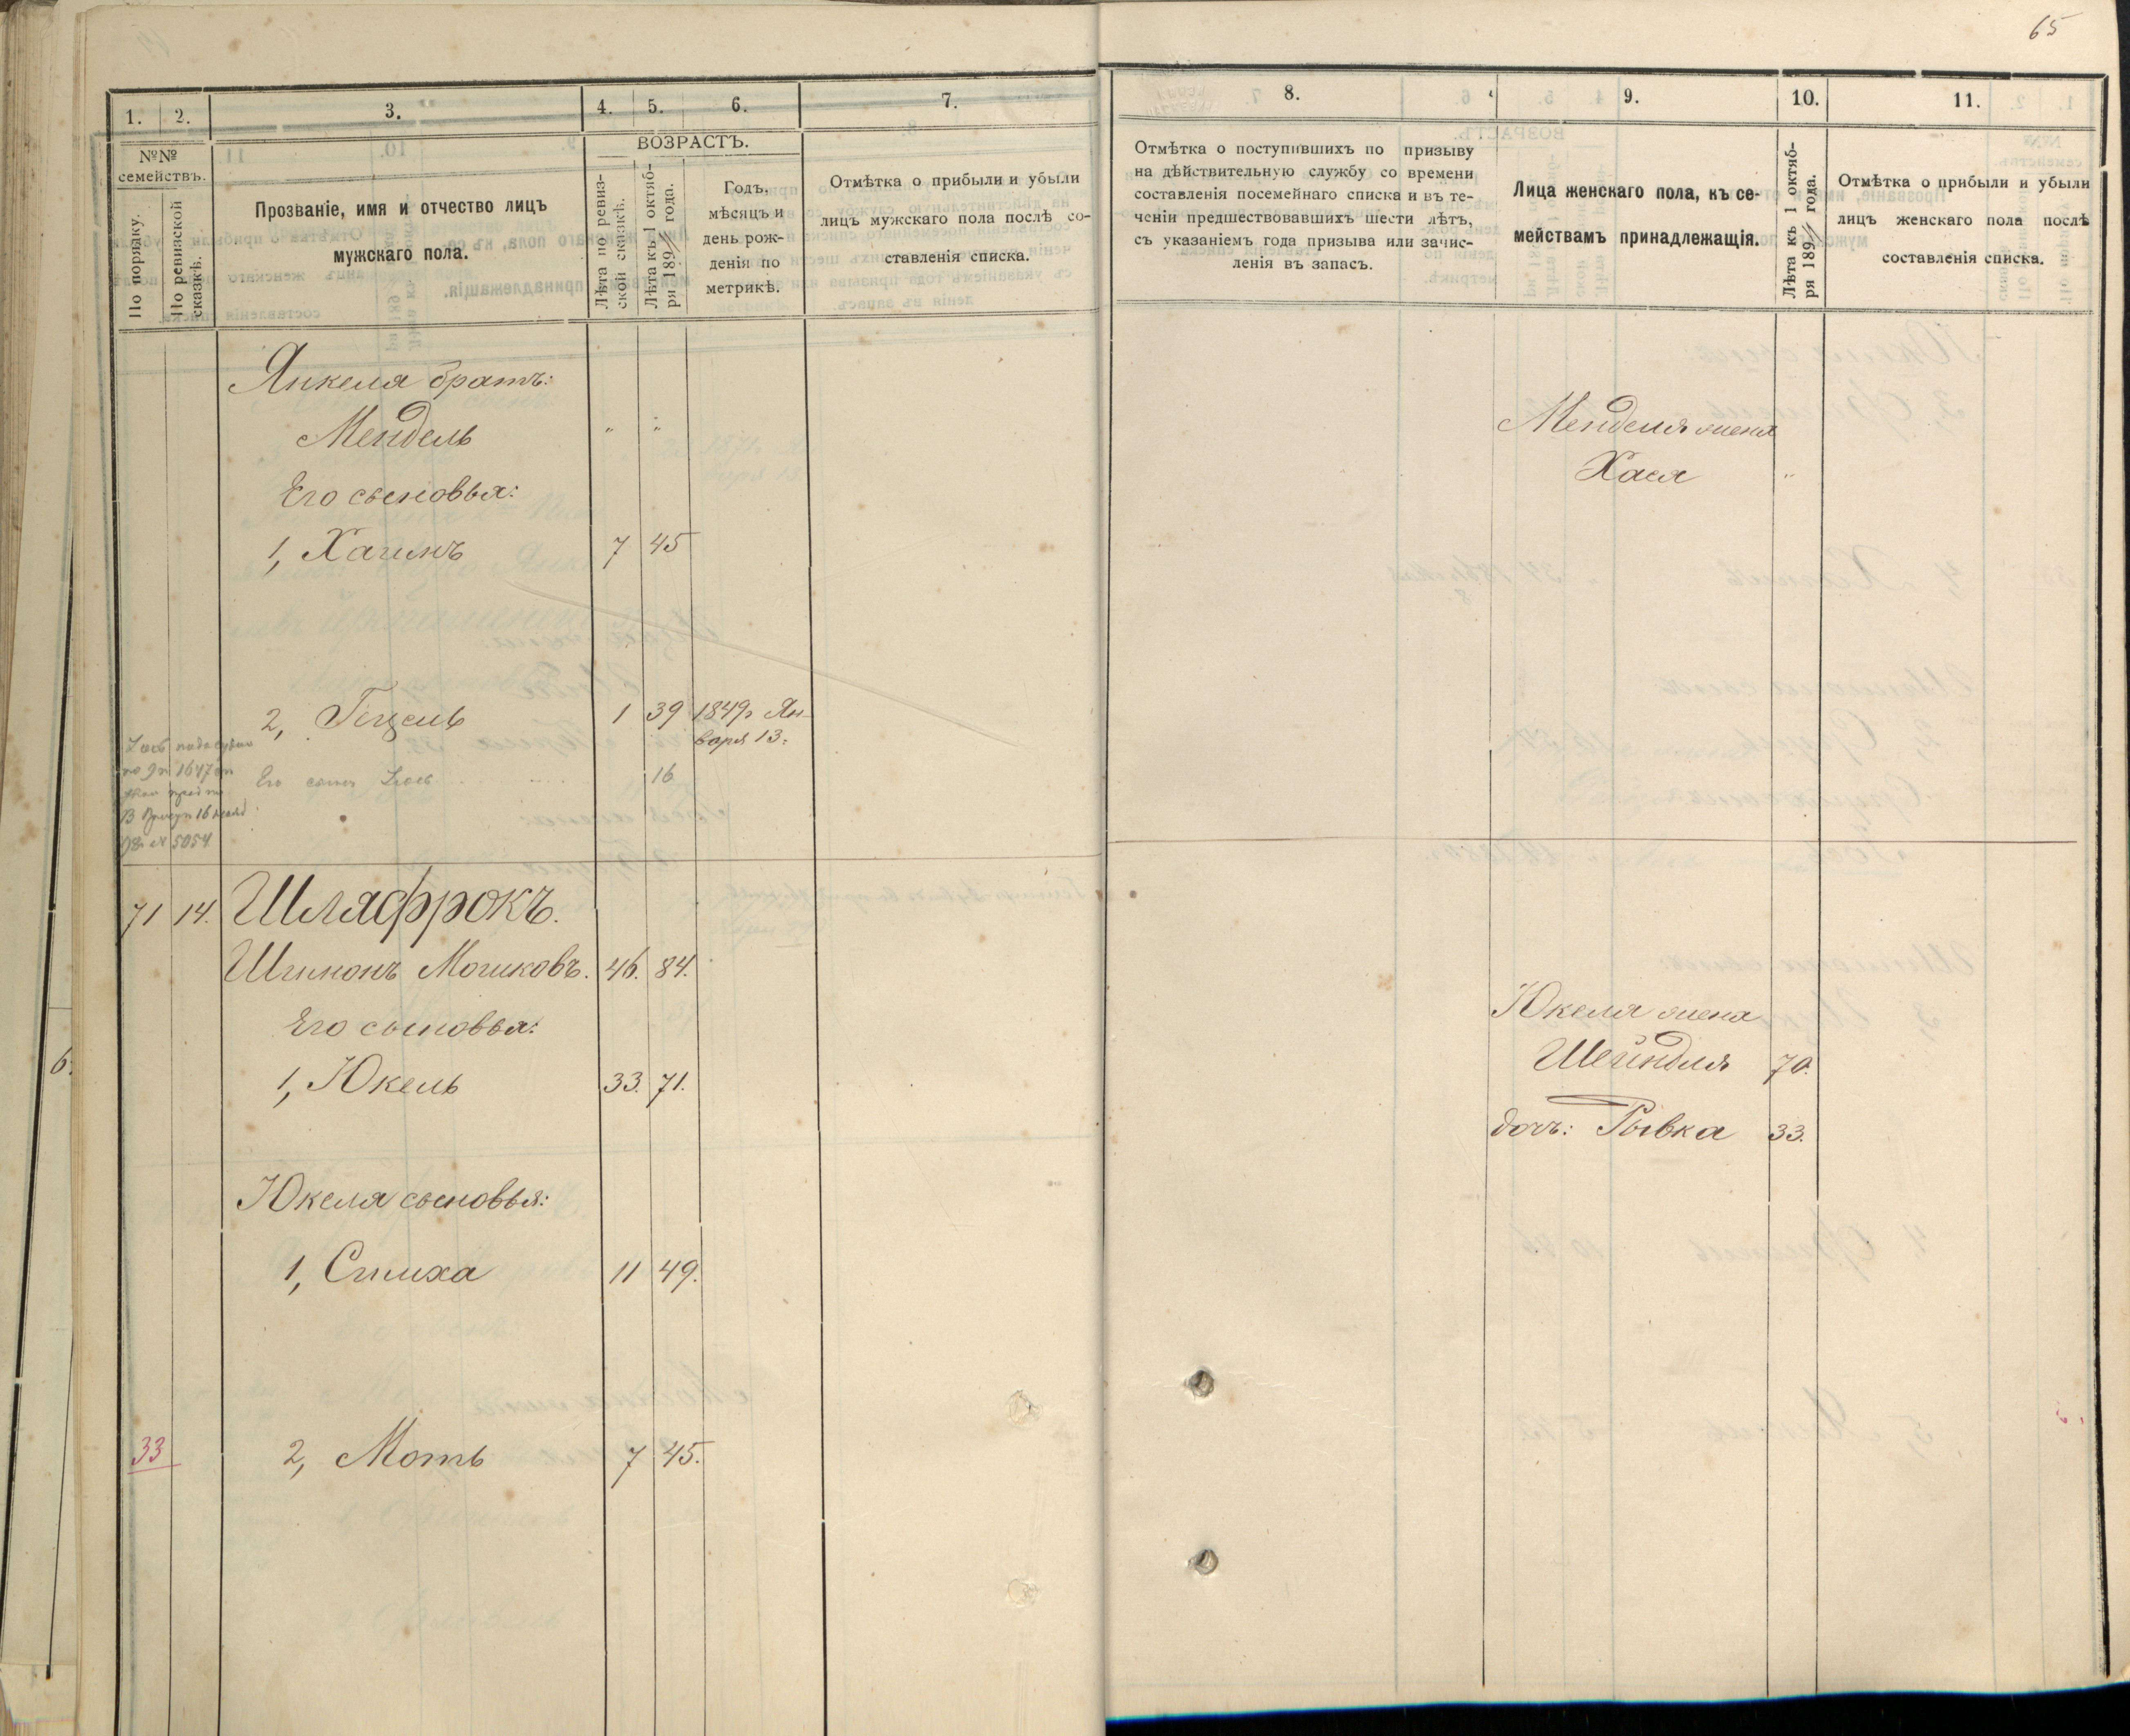 65
1. 2. 3. 4. 5. 6. 7.
№№ семействъ.
По порядку.
По ревизской сказкѣ.
Прозваніе, имя и отчество лицъ
мужскаго пола.
ВОЗРАСТЪ.
Лѣта по ревиз-
ской сказкѣ.
Лѣта къ 1 октяб-
ря 189 года.
Годъ,
мѣсяцъ и
день рож-
денія по
метрикѣ.
Отмѣтка о прибыли и убыли
лицъ мужскаго пола послѣ со-
ставленія списка.
Янкеля братъ:
Мендель " "
Его сыновья:
1, Хаимъ 7 45
2, Гецель 1 39 1849 г. Ян-
варя 13.
Его сынъ 16
71 14. Шлафрокъ.
Шимонъ Мошковъ. 46. 84.
Его сыновья:
1, Юкель 33. 71.
Юкеля сыновья:
1, Симха 11 49.
33 2, Моть 7 45.
8. 9. 10. 11.
Отмѣтка о поступившихъ по призыву
на дѣйствительную службу со времени
составленія посемейнаго списка и въ те-
ченіи предшествовавшихъ шести лѣтъ,
съ указаніемъ года призыва или зачис-
ленія въ запасъ.
Лица женскаго пола, къ се-
мействамъ принадлежащія.
Лѣта къ 1 октяб-
ря 189 года.
Отмѣтка о прибыли и убыли
лицъ женскаго пола послѣ
составленія списка.
Менделя жена
Хася "
Юкеля жена
Шейндля 70.
дочь: Рывка 33.